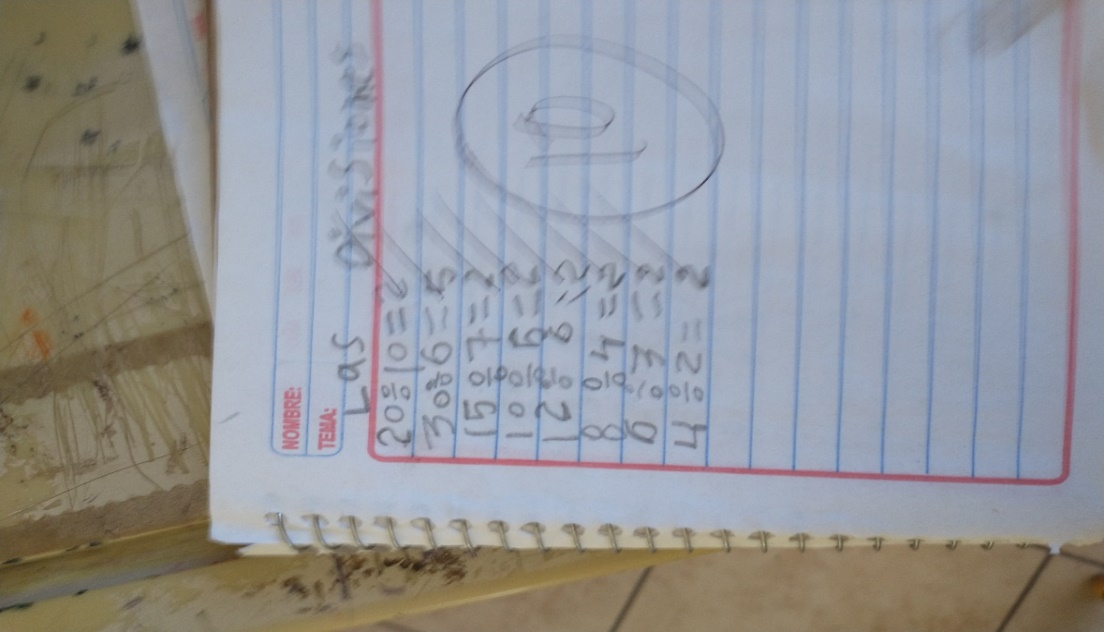 NOMBRE:
TEMA:
Las divisiones
20÷10=2
30÷6=5
15÷7=2
10÷5=2
12÷6=2
8÷4=2
6÷3=2
4÷2=2
10